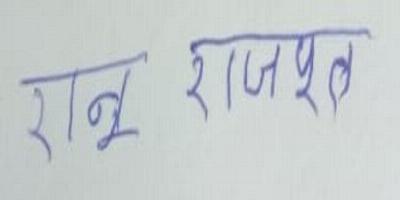 रानू राजपूत